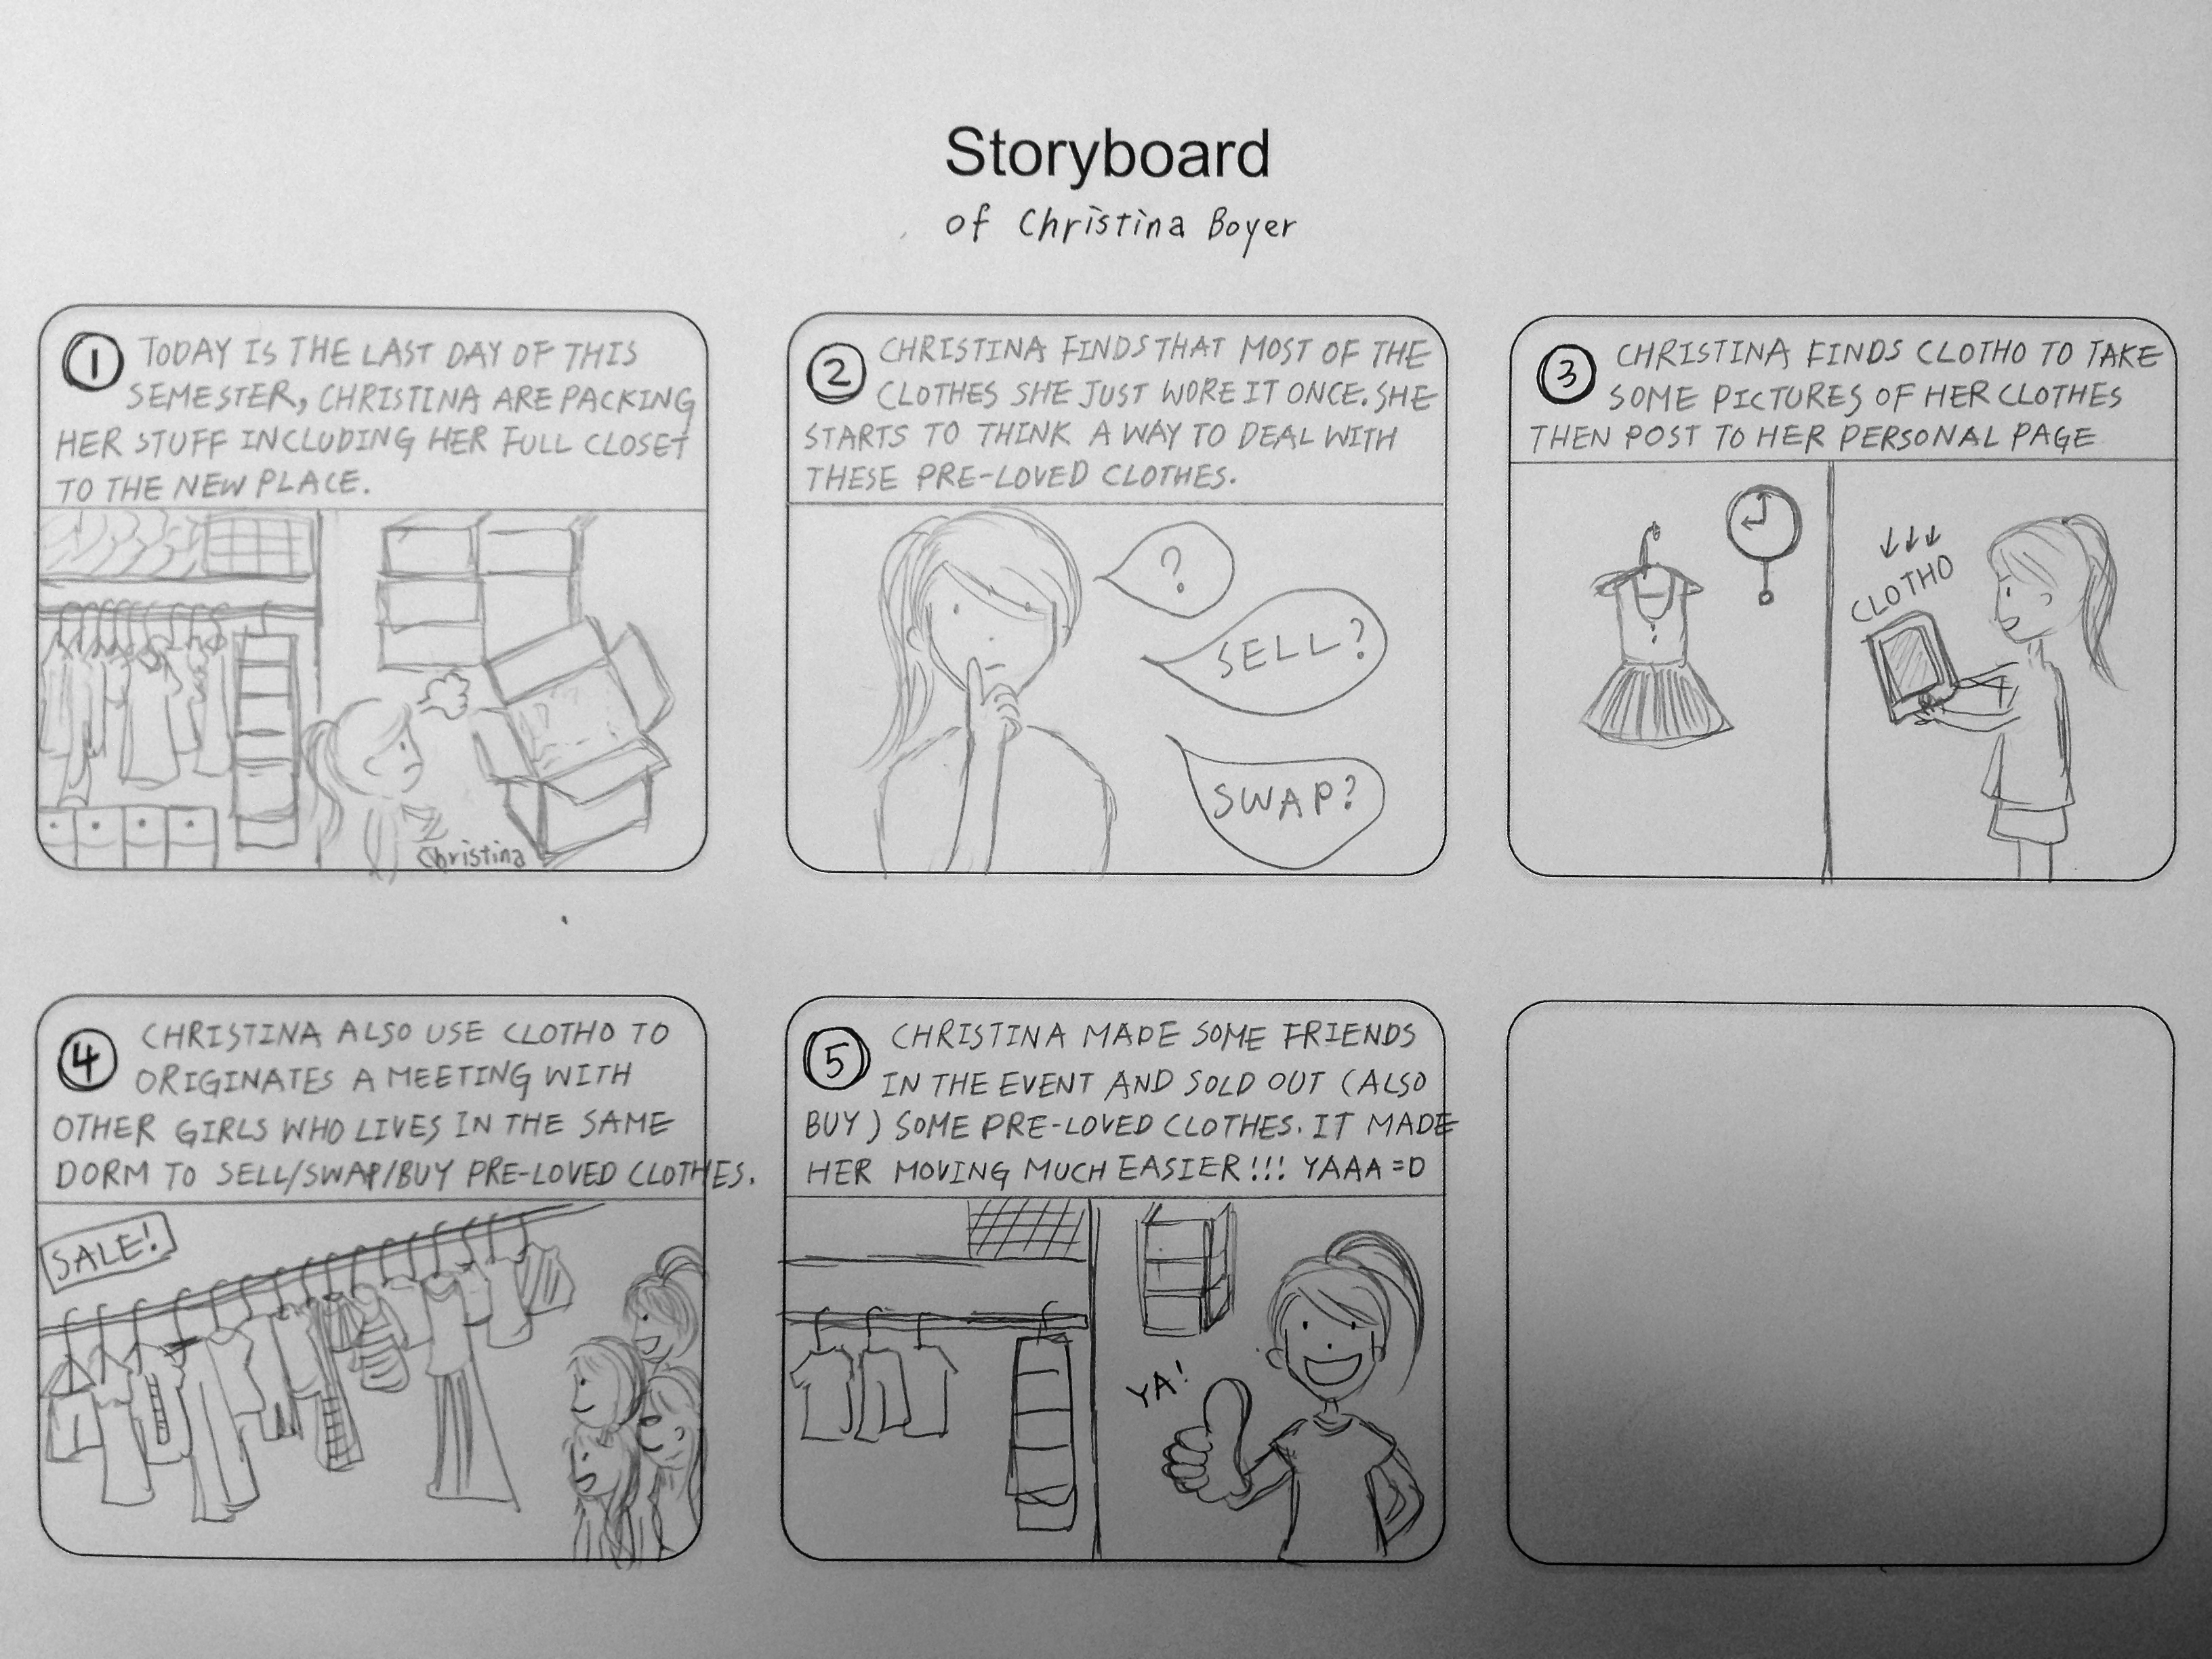 Storyboard
of Christina Boyer
1 TODAY IS THE LAST DAY OF THIS
SEMESTER, CHRISTINA ARE PACKING
HER STUFF INCLUDING HER FULL CLOSET
TO THE NEW PLACE.
Christina
2 CHRISTINA FINDS THAT MOST OF THE
CLOTHES SHE JUST WORE IT ONCE. SHE
STARTS TO THINK A WAY TO DEAL WITH
THESE PRE-LOVED CLOTHES.
?
SELL?
SWAP?
3 CHRISTINA FINDS CLOTHO TO TAKE
SOME PICTURES OF HER CLOTHES
THEN POST TO HER PERSONAL PAGE
CLOTHO
4 CHRISTINA ALSO USE CLOTHO TO
ORIGINATES A MEETING WITH
OTHER GIRLS WHO LIVES IN THE SAME
DORM TO SELL/SWAP/BUY PRE-LOVED CLOTHES.
SALE!
5 CHRISTINA MADE SOME FRIENDS
IN THE EVENT AND SOLD OUT (ALSO
BUY) SOME PRE-LOVED CLOTHES. IT MADE
HER MOVING MUCH EASIER!!! YAAA =D
YA!